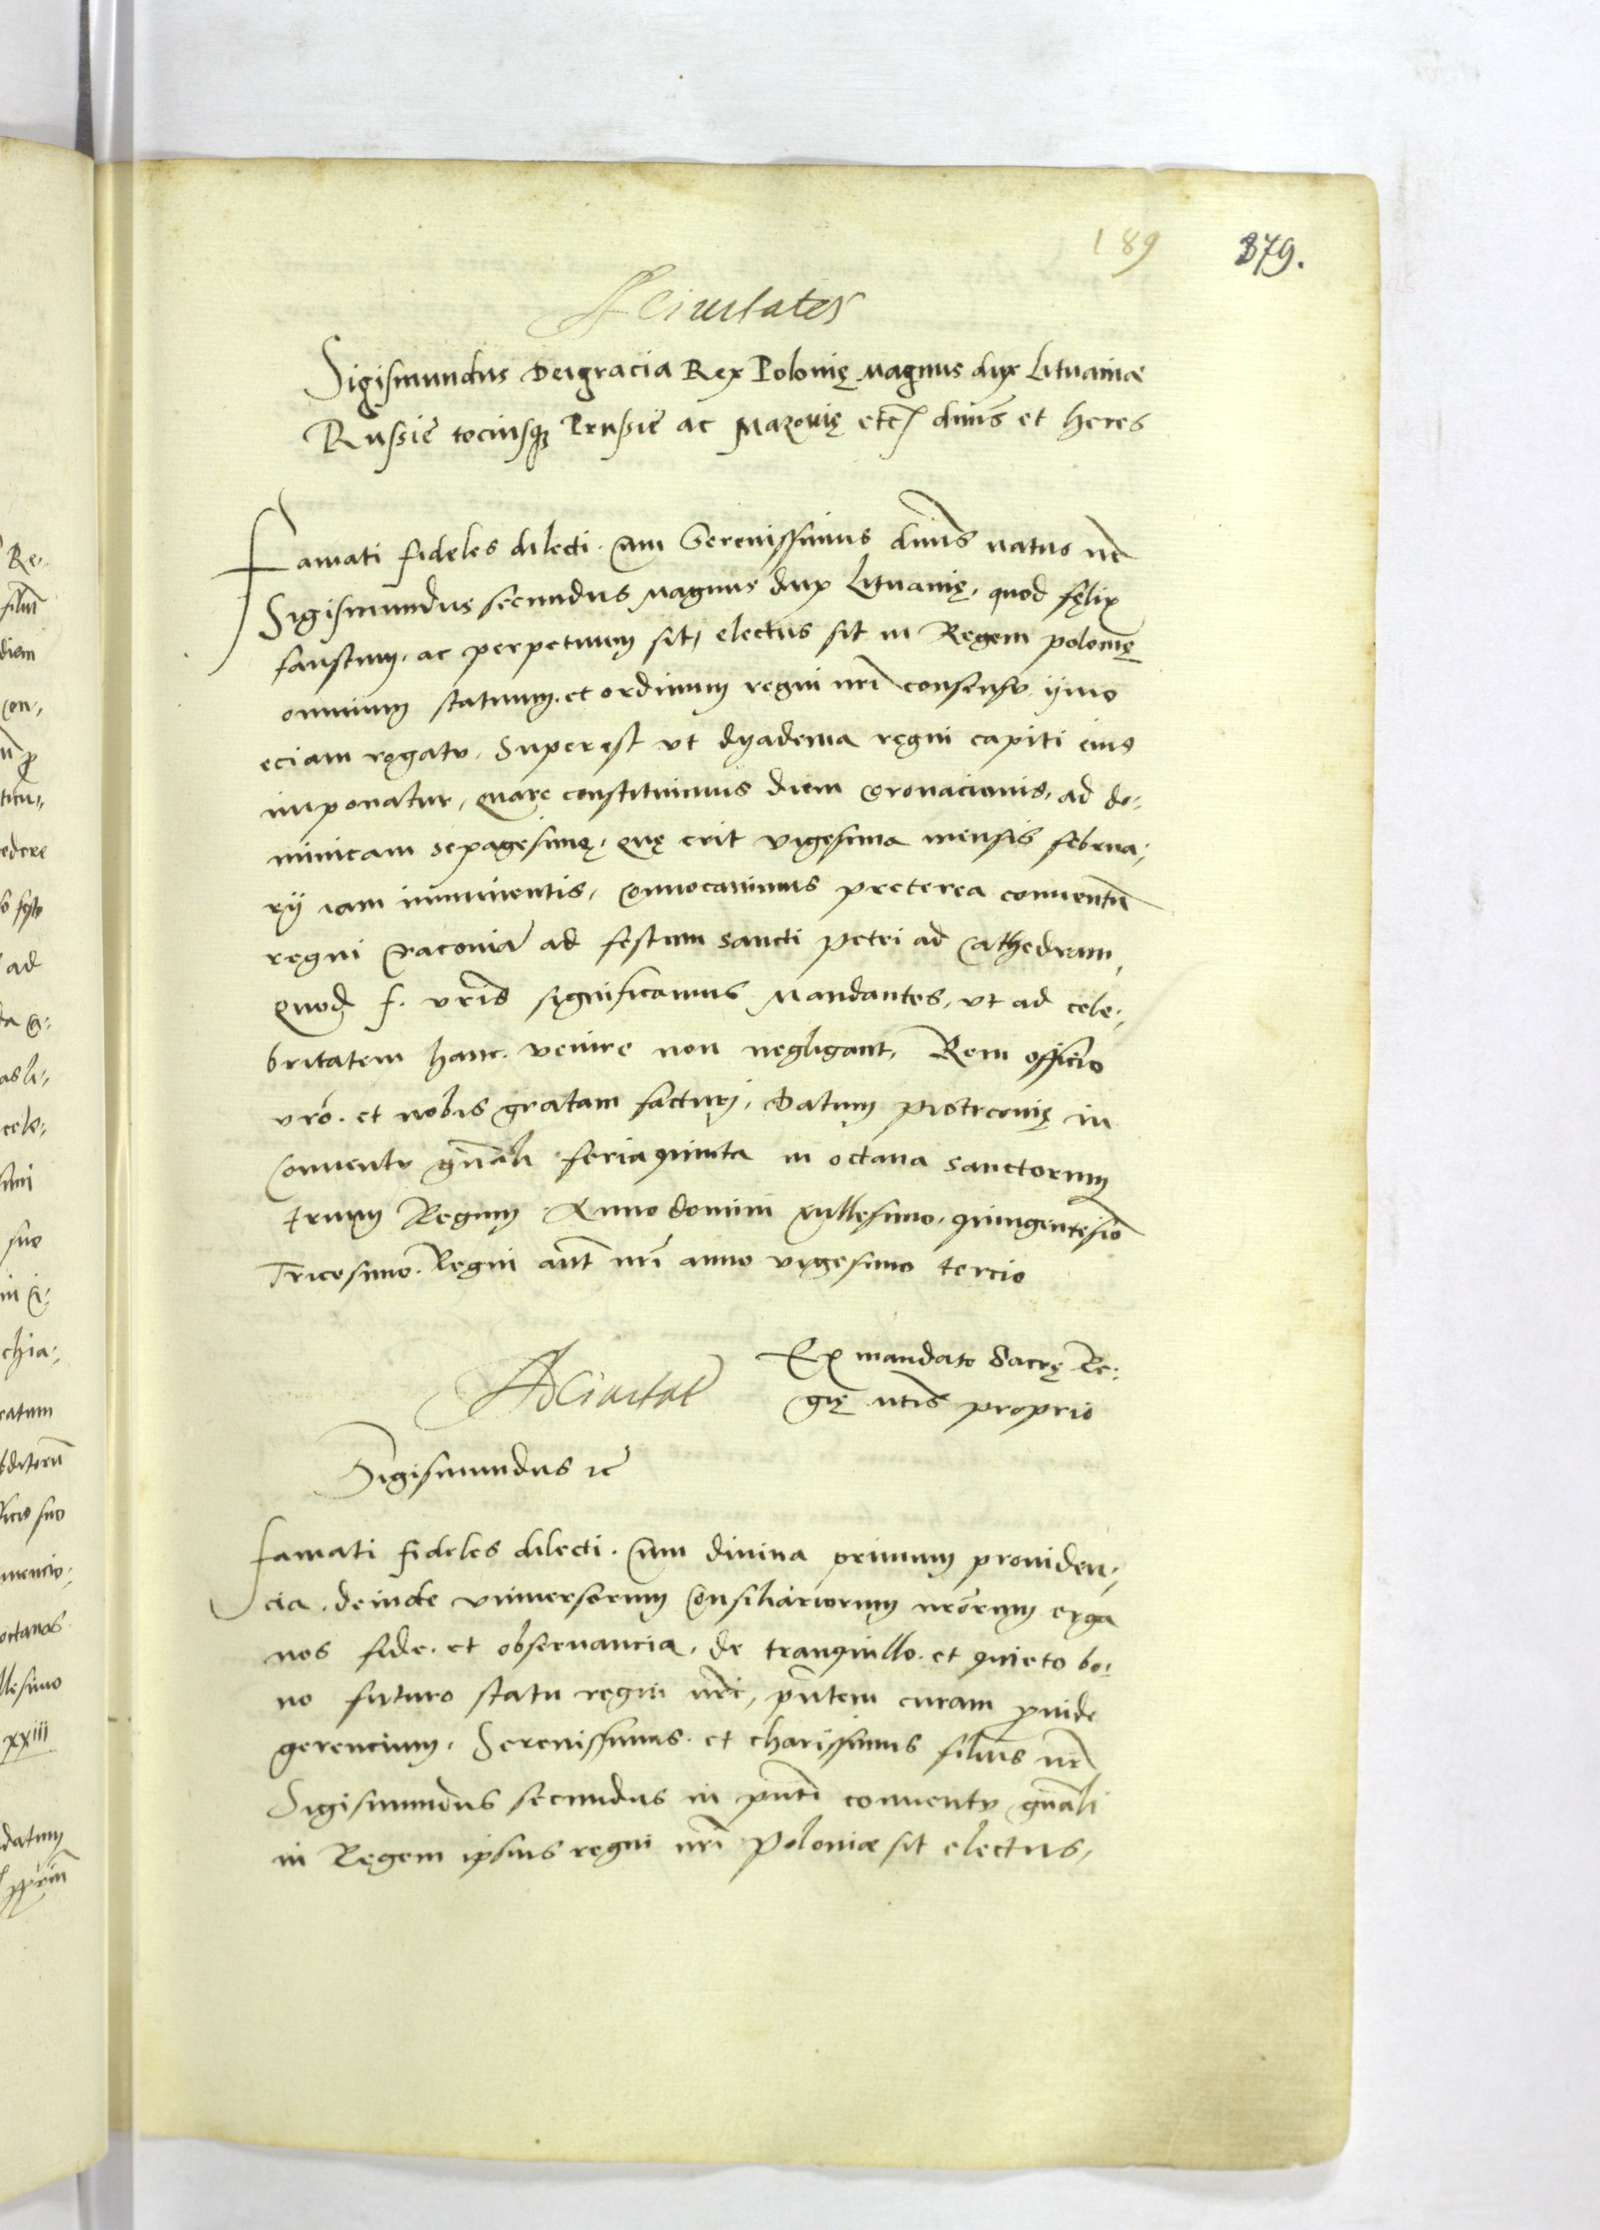 189 379.
Ad Civitates
Sigismundus Dei gracia Rex Polonię Magnus dux Lituaniæ
Russie tociusq₃ Prussie ac Mazovię etc̃ dn̄s et heres
Famati fideles dilecti. Cum Serenissimus dn̄s natus nr̄
Sigismundus secundus Magnus dux Lituanię, quod fęlix
faustum, ac perpetuum sit, electus sit in Regem polonię
omnium statuum, et ordinum regni nr̄i consensu ymo
eciam rogatu, Superest vt dyadema regni capiti eius
imponatur, quare constituimus diem coronacionis, ad do-
minicam sexagesimę, quę crit vigesima mensis februa-
rij iam imminentis, Convocavimus preterea conuentū
regni Cracoviā ad festum sancti petri ad Cathedram,
Quod f. vr̄is significamus Mandantes, vt ad cele-
britatem hanc venire non negligant, Rem officio
vr̄o. et nobis gratam facturi, Datum Piotrcovię in
Conventu gn̄ali feria quinta in octava sanctorum
trium Regum Anno domini Millesimo, quingentesimo
Tricesimo. Regni aūt nr̄i anno vigesimo tercio
Ex mandato Sacrę Re-
gię mt̄is proprio
Ad Civitat̄
Sigismundus ꝛc̄
Famati fideles dilecti. Cum divina primum providen-
cia, deinde vniversorum Consiliariorum nr̄orum erga
nos fide. et observancia, de tranquillo. et quieto bo-
no futuro statu regni nr̄i, pn̄tem curam provide
gerencium, Serenissimus. et charissimus filius nr̄
Sigismundus secundus in pn̄ti conventu gn̄ali
in Regem ipsius regni nr̄i Poloniæ sit electus,